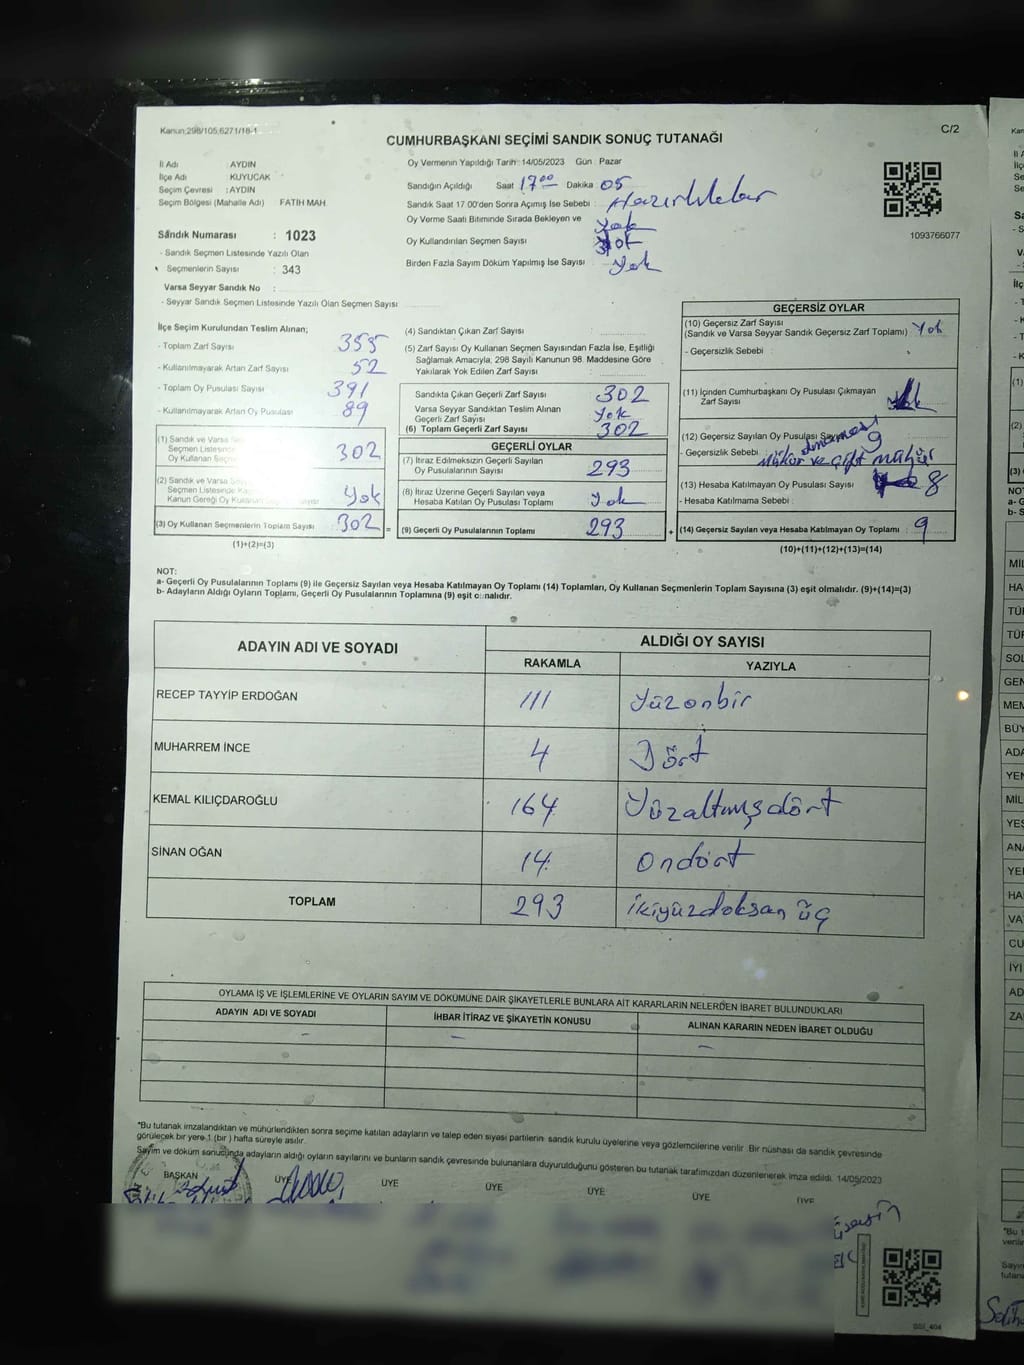 Kanun;298/105,6271/18-1
C/2
CUMHURBAŞKANI SEÇİMİ SANDIK SONUÇ TUTANAĞI
İl Adı : AYDIN
İlçe Adı : KUYUCAK
Seçim Çevresi : AYDIN
Seçim Bölgesi (Mahalle Adı) FATİH MAH.
Sandık Numarası : 1023
- Sandık Seçmen Listesinde Yazılı Olan
Seçmenlerin Sayısı : 343
Varsa Seyyar Sandık No :
- Seyyar Sandık Seçmen Listesinde Yazılı Olan Seçmen Sayısı
Oy Vermenin Yapıldığı Tarih: 14/05/2023 Gün : Pazar
Sandığın Açıldığı Saat 17 00 Dakika 05
Sandık Saat 17.00'den Sonra Açımış İse Sebebi : Hazırlıklar
Oy Verme Saati Bitiminde Sırada Bekleyen ve Yok
Oy Kullandırılan Seçmen Sayısı Yok
Birden Fazla Sayım Döküm Yapılmış İse Sayısı Yok
1093766077
İlçe Seçim Kurulundan Teslim Alınan;
- Toplam Zarf Sayısı 355
- Kullanılmayarak Artan Zarf Sayısı 52
- Toplam Oy Pusulası Sayısı 391
- Kullanılmayarak Artan Oy Pusulası 89
(1) Sandık ve Varsa
Seçmen Listesinde
Oy Kullanan Seçmen 302
(2) Sandık ve Varsa
Seçmen Listesinde
Kanun Gereği Oy Kullanan Yok
(3) Oy Kullanan Seçmenlerin Toplam Sayısı 302
(1)+(2)=(3)
(4) Sandıktan Çıkan Zarf Sayısı :
(5) Zarf Sayısı Oy Kullanan Seçmen Sayısından Fazla İse, Eşitliği
Sağlamak Amacıyla, 298 Sayılı Kanunun 98. Maddesine Göre
Yakılarak Yok Edilen Zarf Sayısı :
Sandıkta Çıkan Geçerli Zarf Sayısı 302
Varsa Seyyar Sandıktan Teslim Alınan
Geçerli Zarf Sayısı Yok
(6) Toplam Geçerli Zarf Sayısı 302
GEÇERLİ OYLAR
(7) İtiraz Edilmeksizin Geçerli Sayılan
Oy Pusulalarının Sayısı 293
(8) İtiraz Üzerine Geçerli Sayılan veya
Hesaba Katılan Oy Pusulası Toplamı Yok
= (9) Geçerli Oy Pusulalarının Toplamı 293
GEÇERSİZ OYLAR
(10) Geçersiz Zarf Sayısı
(Sandık ve Varsa Seyyar Sandık Geçersiz Zarf Toplamı) Yok
- Geçersizlik Sebebi :
(11) İçinden Cumhurbaşkanı Oy Pusulası Çıkmayan
Zarf Sayısı
(12) Geçersiz Sayılan Oy Pusulası Sayısı 9
- Geçersizlik Sebebi : ve çift mühür
(13) Hesaba Katılmayan Oy Pusulası Sayısı 8
- Hesaba Katılmama Sebebi :
+ (14) Geçersiz Sayılan veya Hesaba Katılmayan Oy Toplamı : 9
(10)+(11)+(12)+(13)=(14)
NOT:
a- Geçerli Oy Pusulalarının Toplamı (9) ile Geçersiz Sayılan veya Hesaba Katılmayan Oy Toplamı (14) Toplamları, Oy Kullanan Seçmenlerin Toplam Sayısına (3) eşit olmalıdır. (9)+(14)=(3)
b- Adayların Aldığı Oyların Toplamı, Geçerli Oy Pusulalarının Toplamına (9) eşit olmalıdır.
ADAYIN ADI VE SOYADI ALDIĞI OY SAYISI
RAKAMLA YAZIYLA
RECEP TAYYİP ERDOĞAN 111 Yüzonbir
MUHARREM İNCE 4 Dört
KEMAL KILIÇDAROĞLU 164 Yüzaltmışdört
SİNAN OĞAN 14 Ondört
TOPLAM 293 ikiyüzdoksan üç
OYLAMA İŞ VE İŞLEMLERİNE VE OYLARIN SAYIM VE DÖKÜMÜNE DAİR ŞİKAYETLERLE BUNLARA AİT KARARLARIN NELERDEN İBARET BULUNDUKLARI
ADAYIN ADI VE SOYADI İHBAR İTİRAZ VE ŞİKAYETİN KONUSU ALINAN KARARIN NEDEN İBARET OLDUĞU
- - -
*Bu tutanak imzalandıktan ve mühürlendikten sonra seçime katılan adayların ve talep eden siyasi partilerin sandık kurulu üyelerine veya gözlemcilerine verilir. Bir nüshası da sandık çevresinde
görülecek bir yere 1 (bir) hafta süreyle asılır.
Sayım ve döküm sonucunda adayların aldığı oyların sayılarını ve bunların sandık çevresinde bulunanlara duyurulduğunu gösteren bu tutanak tarafımızdan düzenlenerek imza edildi. 14/05/2023
BAŞKAN ÜYE ÜYE ÜYE ÜYE ÜYE ÜYE
SSİ_404